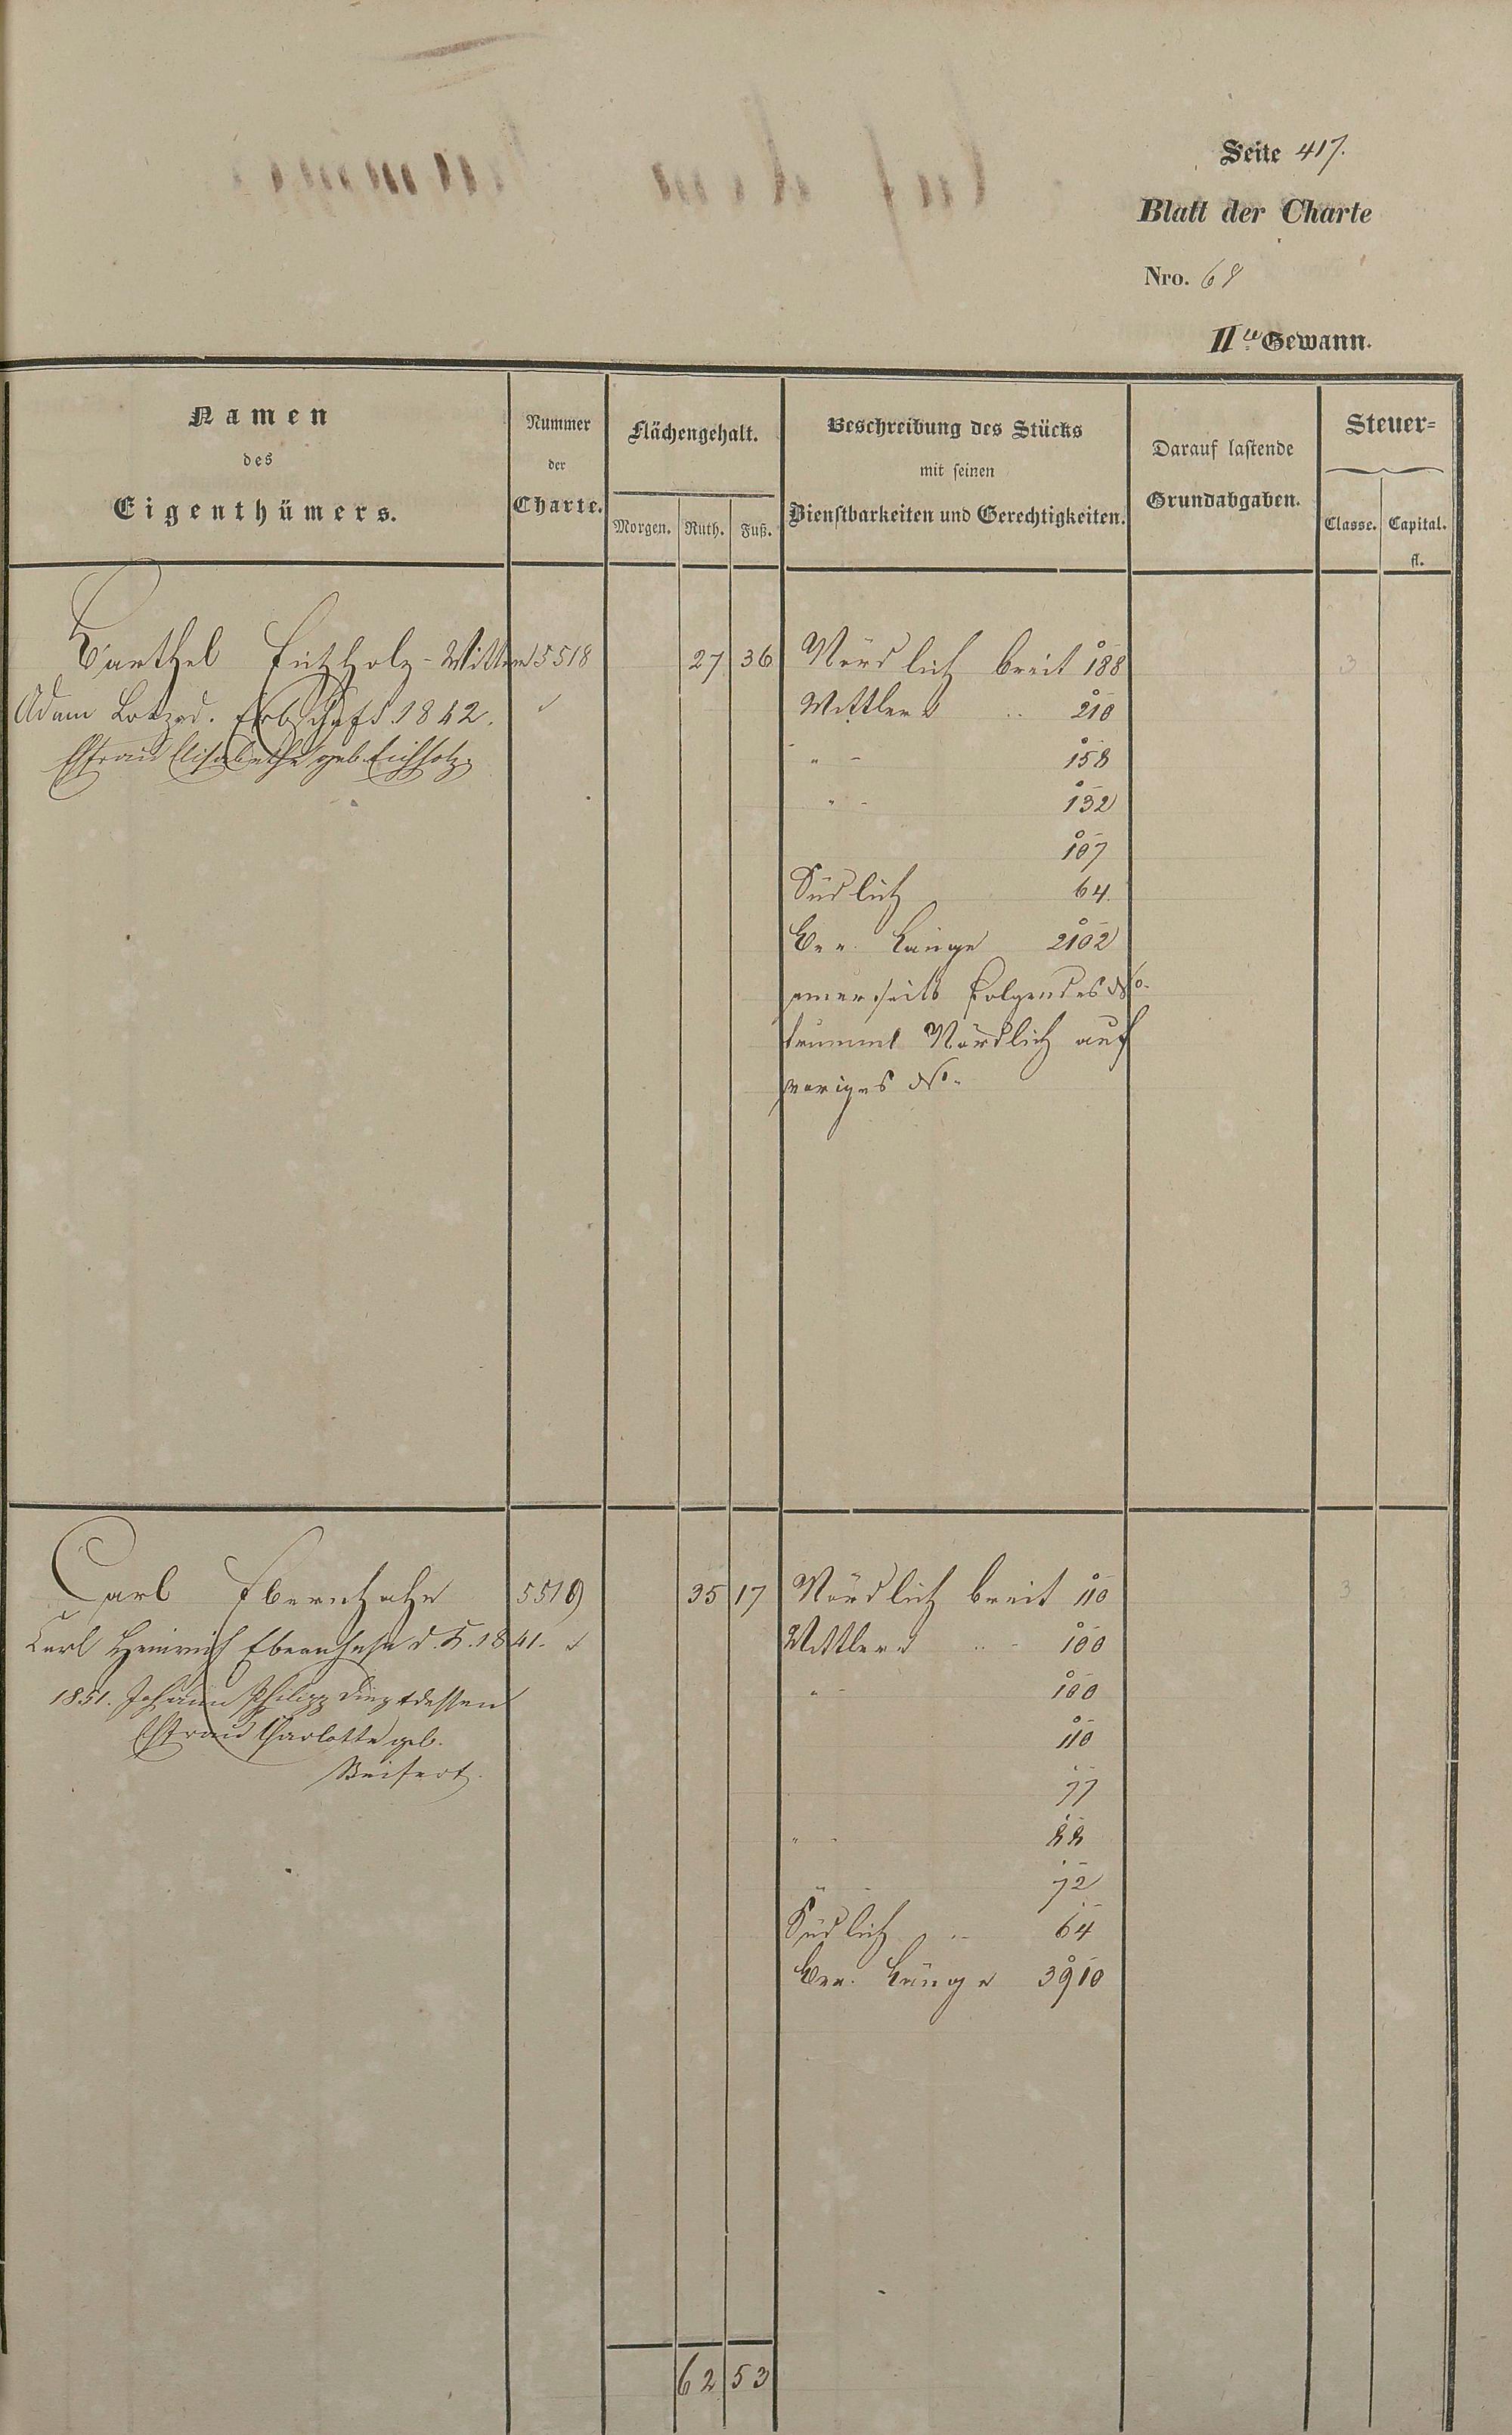 Seite 417.
Blatt der Charte
Nro. 68
IIte Gewann.
Namen
des
Eigenthümers.
Nummer
der
Charte.
Flächengehalt.
Morgen. Ruth. Fuß.
Beschreibung des Stücks
mit seinen
Dienstbarkeiten und Gerechtigkeiten.
Darauf lastende
Grundabgaben.
Steuer=
Classe. Capital.
fl.
Barthel Eichholz-Wittwe 5518 27 36 Nördlich breit 188 3
Adam Erbschaft 1842. Mittlere " 210
Ehefrau Elisabetha geb. Eichholz " - 158
" - 132
107
Südlich 64
Länge 2102
einerseits folgendes No.
Nördlich auf
voriges No.
Carl Ebernhahn 5519 35 17 Nördlich breit 110 3
Carl Heinrich Ebernhahn d. K. 1841. Mittlere " - 100
1851. Johann Philipp Dinz dessen " - 100
Ehefrau Charlotte geb. 110
77
" - 88
" - 72
Südlich " 64
Länge 3910
62 53